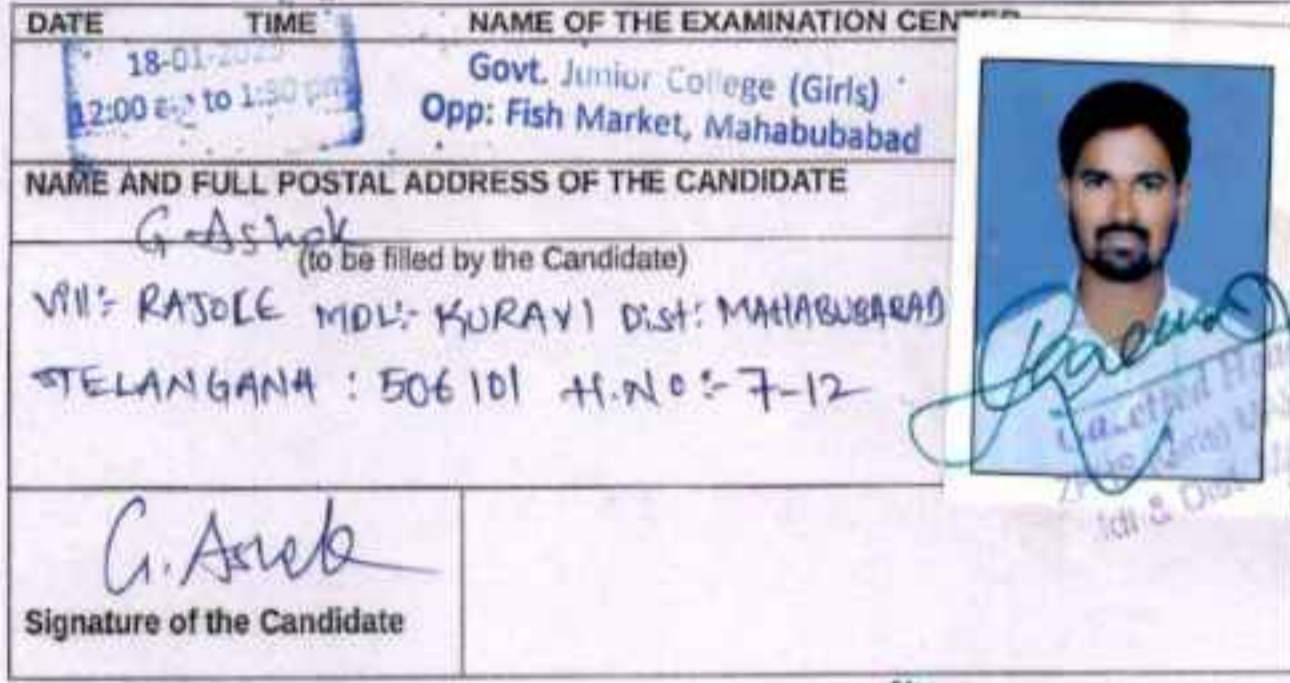 DATE TIME NAME OF THE EXAMINATION CENTER
18-01-
12:00 to 1:30 pm
Govt. Junior College (Girls)
Opp: Fish Market, Mahabubabad
NAME AND FULL POSTAL ADDRESS OF THE CANDIDATE
G. Ashok
(to be filled by the Candidate)
Vill:- RAJOLE MDL:- KURAVI Dist: MAHABUBABAD
TELANGANA : 506101 H.NO:- 7-12
G. Ashok
Signature of the Candidate